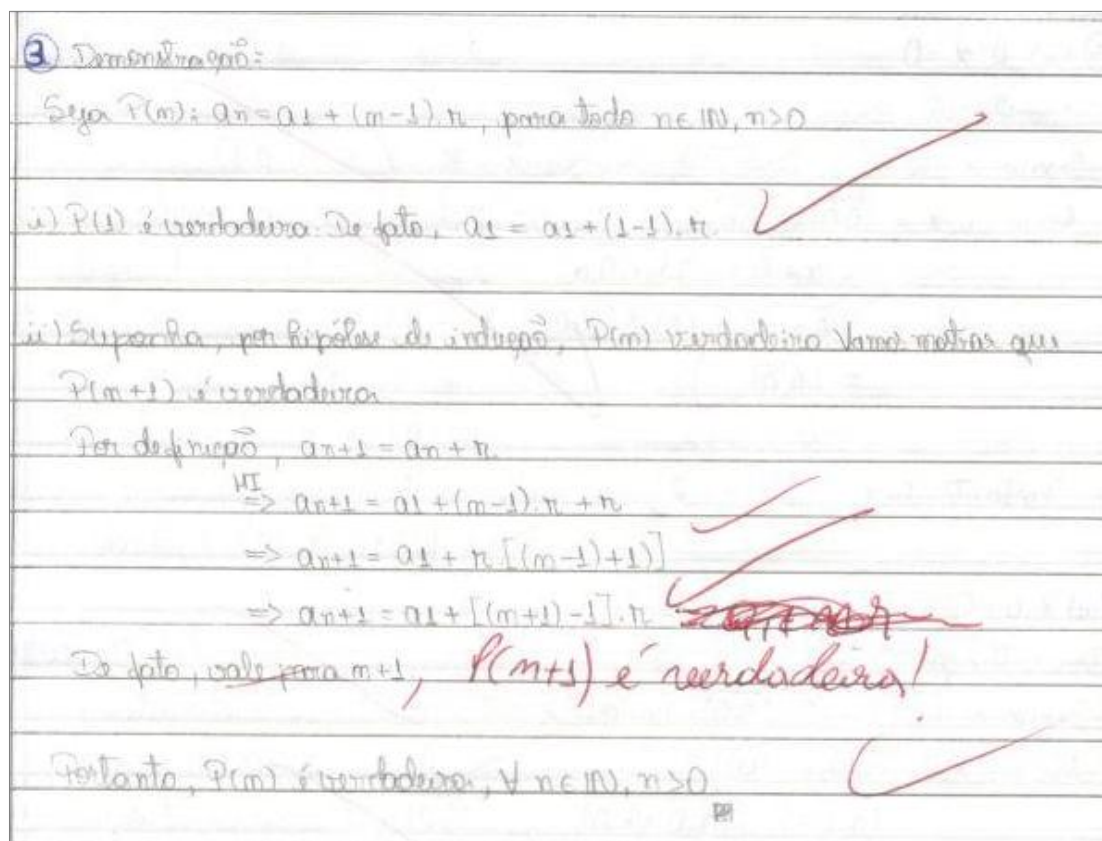 3 Demonstração:
Seja P(n): an = a1 + (n-1).r, para todo n ∈ IN, n>0
i) P(1) é verdadeira. De fato, a1 = a1 + (1-1).r.
ii) Suponha, por hipótese de indução, P(n) verdadeira. Vamos mostrar que
P(n+1) é verdadeira.
Por definição, an+1 = an + r.
HI
=> an+1 = a1 + (n-1).r + r
=> an+1 = a1 + r.[(n-1)+1)]
=> an+1 = a1 + [(n+1)-1].r
De fato, vale para n+1, P(n+1) é verdadeira!
Portanto, P(n) é verdadeira, ∀ n ∈ IN, n>0.